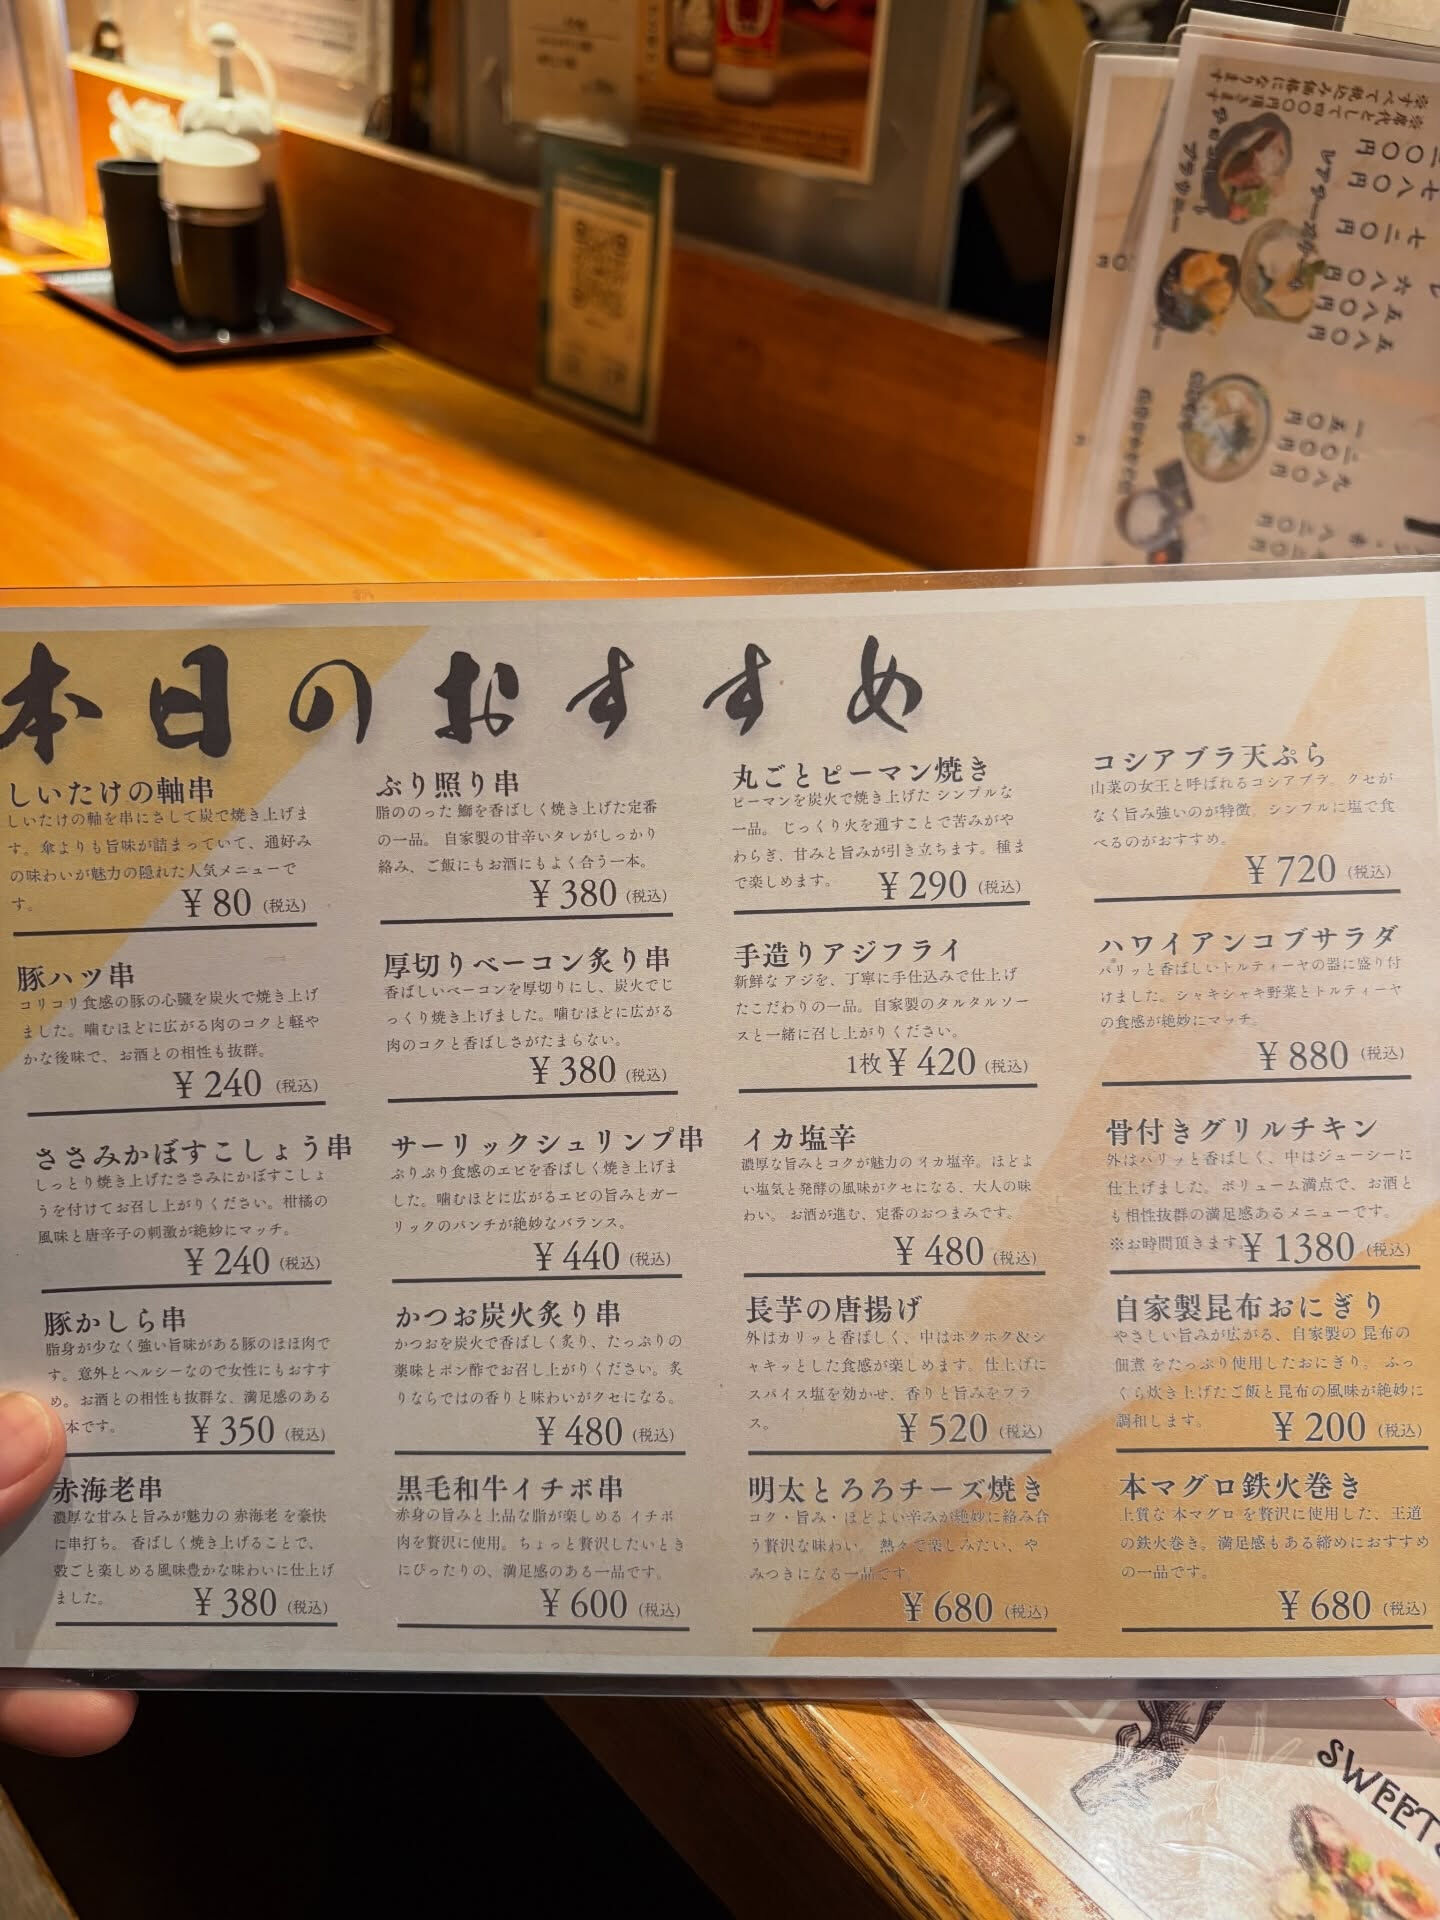 本日のおすすめ
しいたけの軸串
しいたけの軸を串にさして炭で焼き上げま
す。傘よりも旨味が詰まっていて、通好み
の味わいが魅力の隠れた人気メニューで
す。
¥80 (税込)
豚ハツ串
コリコリ食感の豚の心臓を炭火で焼き上げ
ました。噛むほどに広がる肉のコクと軽や
かな後味で、お酒との相性も抜群。
¥240 (税込)
ささみかぼすこしょう串
しっとり焼き上げたささみにかぼすこしょ
うを付けてお召し上がりください。柑橘の
風味と唐辛子の刺激が絶妙にマッチ。
¥240 (税込)
豚かしら串
脂身が少なく強い旨味がある豚のほほ肉で
す。意外とヘルシーなので女性にもおすす
め。お酒との相性も抜群な、満足感のある
本です。
¥350 (税込)
赤海老串
濃厚な甘みと旨みが魅力の 赤海老 を豪快
に串打ち。 香ばしく焼き上げることで、
殻ごと楽しめる風味豊かな味わいに仕上げ
ました。
¥380 (税込)
ぶり照り串
脂ののった 鰤を香ばしく焼き上げた定番
の一品。 自家製の甘辛いタレがしっかり
絡み、ご飯にもお酒にもよく合う一本。
¥380 (税込)
厚切りベーコン炙り串
香ばしいベーコンを厚切りにし、炭火でじ
っくり焼き上げました。噛むほどに広がる
肉のコクと香ばしさがたまらない。
¥380 (税込)
サーリックシュリンプ串
ぷりぷり食感のエビを香ばしく焼き上げま
した。噛むほどに広がるエビの旨みとガー
リックのパンチが絶妙なバランス。
¥440 (税込)
かつお炭火炙り串
かつおを炭火で香ばしく炙り、たっぷりの
薬味とポン酢でお召し上がりください。炙
りならではの香りと味わいがクセになる。
¥480 (税込)
黒毛和牛イチボ串
赤身の旨みと上品な脂が楽しめる イチボ
肉を贅沢に使用。ちょっと贅沢したいとき
にぴったりの、満足感のある一品です。
¥600 (税込)
丸ごとピーマン焼き
ピーマンを炭火で焼き上げた シンプルな
一品。 じっくり火を通すことで苦みがや
わらぎ、甘みと旨みが引き立ちます。種ま
で楽しめます。
¥290 (税込)
手造りアジフライ
新鮮な アジを、丁寧に手仕込みで仕上げ
たこだわりの一品。自家製のタルタルソー
スと一緒に召し上がりください。
1枚¥420 (税込)
イカ塩辛
濃厚な旨みとコクが魅力の イカ塩辛。ほどよ
い塩気と発酵の風味がクセになる、大人の味
わい。 お酒が進む、定番のおつまみです。
¥480 (税込)
長芋の唐揚げ
外はカリッと香ばしく、中はホクホク&シ
ャキッとした食感が楽しめます。仕上げに
スパイス塩を効かせ、香りと旨みをプラ
ス。
¥520 (税込)
明太とろろチーズ焼き
コク・旨み・ほどよい辛みが絶妙に絡み合
う贅沢な味わい。 熱々で楽しみたい、や
みつきになる一品です。
¥680 (税込)
コシアブラ天ぷら
山菜の女王と呼ばれるコシアブラ。クセが
なく旨み強いのが特徴。シンプルに塩で食
べるのがおすすめ。
¥720 (税込)
ハワイアンコブサラダ
パリッと香ばしいトルティーヤの器に盛り付
けました。シャキシャキ野菜とトルティーヤ
の食感が絶妙にマッチ。
¥880 (税込)
骨付きグリルチキン
外はパリッと香ばしく、中はジューシーに
仕上げました。ボリューム満点で、お酒と
も相性抜群の満足感あるメニューです。
※お時間頂きます。¥1380 (税込)
自家製昆布おにぎり
やさしい旨みが広がる、自家製の 昆布の
佃煮 をたっぷり使用したおにぎり。 ふっ
くら炊き上げたご飯と昆布の風味が絶妙に
調和します。
¥200 (税込)
本マグロ鉄火巻き
上質な 本マグロ を贅沢に使用した、王道
の鉄火巻き。満足感もある締めにおすすめ
の一品です。
¥680 (税込)
SWEET